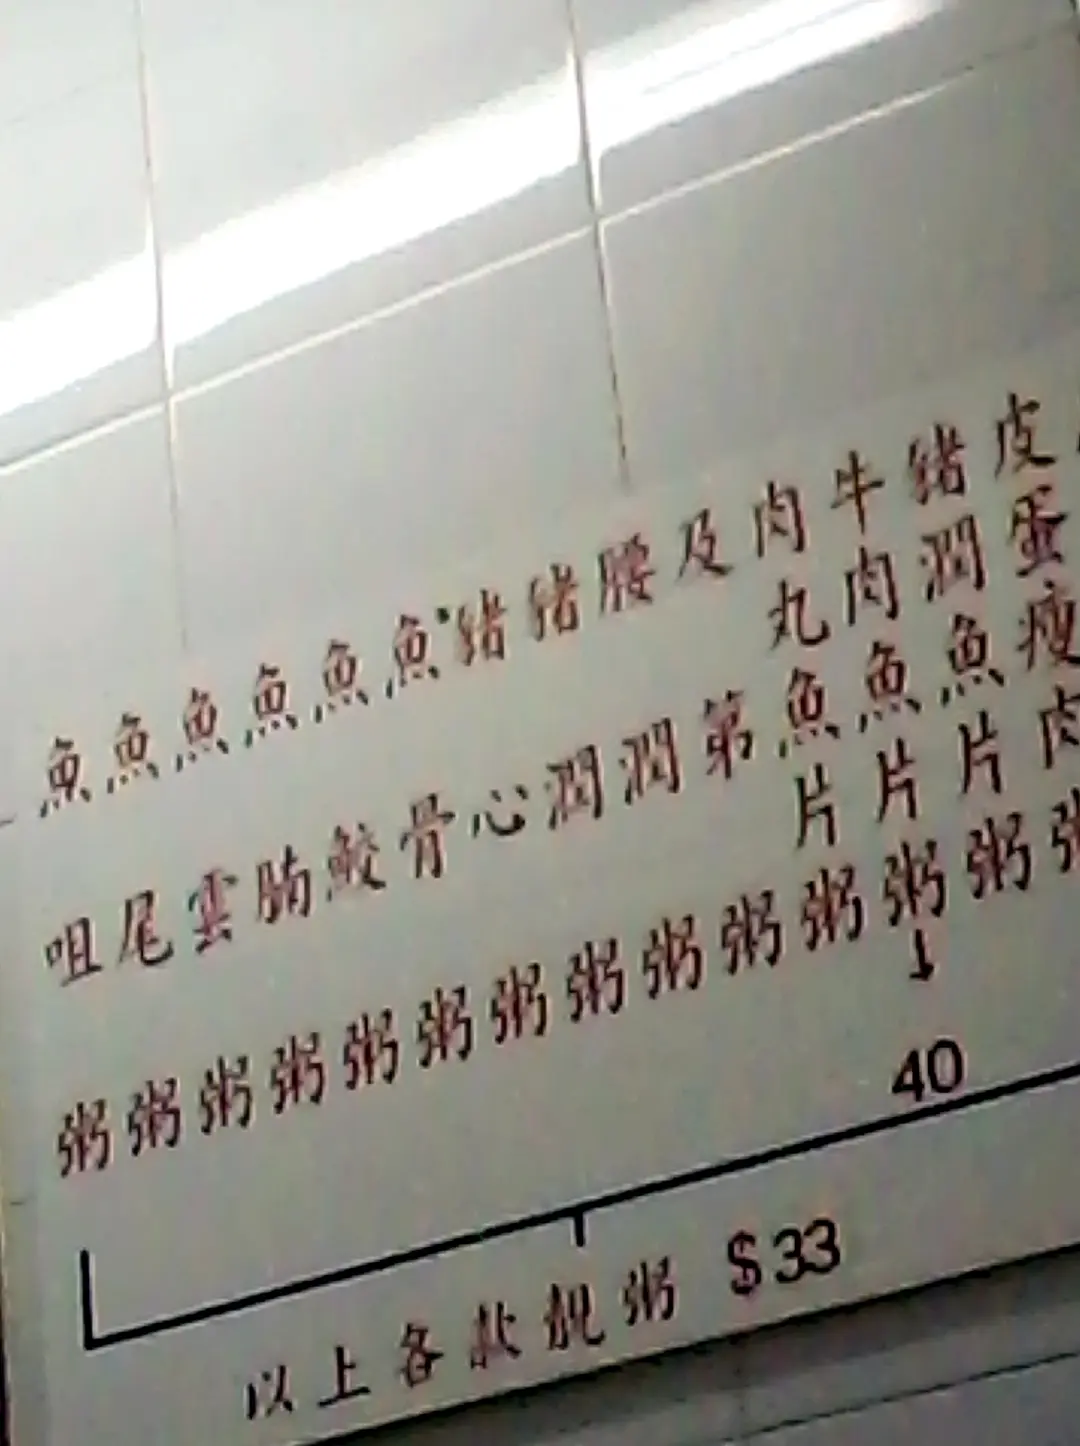 皮蛋瘦肉粥
猪潤魚片粥
牛肉魚片粥
40
肉丸魚片粥
及第粥
腰潤粥
猪潤粥
猪心粥
魚骨粥
魚鮫粥
魚腩粥
魚雲粥
魚尾粥
魚咀粥
以上各款靚粥 $33